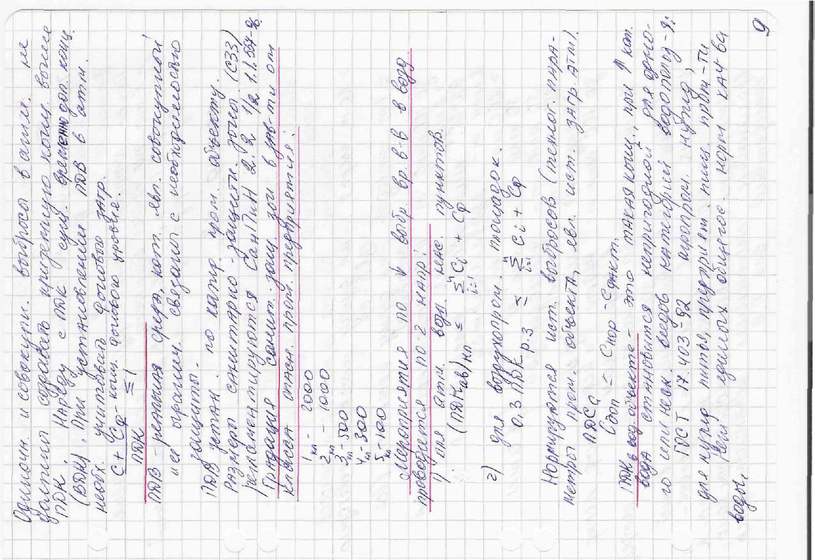 9
Одиночн. и совокупн. выбросы в атм. не
должны создавать приземную конц. выше
ПДК. Наряду с ПДК сущ. временно доп. конц.
(ВДК). При установлении ПДВ в атм.
необх. учитывать фонового загр.
С + Сф - конц. фонового уровня.
ПДК ≤ 1
ПДВ - реальная сред, кот. явл. совокупной
её охраны связана с необходимостью
защиты.
ПДВ устан. по кажд. пром. объекту.
Размеры санитарно-защитн. зоны (СЗЗ)
регламентируются СанПиН 2.2 1/2 1.1.
Градация санит. защ. зон в зав-ти от
классов опасн. пром. предприятия:
1 кл - 2000
2 кл - 1000
3 кл - 500
4 кл - 300
5 кл - 100
Мероприятия по ↓ выбр. вр. в-в в возд
проводятся по 2 напр:
1) для атм. возд. насел. пунктов.
(ПДК мв) нп ≤ Σ i=1 n Ci + Сф
2) для воздухопром. площадок.
0.3 ПДК р.з ≤ Σ i=1 n Ci + Сф
Нормируются ист. выбросов (технол. пара-
метры пром. объекта, явл. ист. загр атм).
Сдоп = Снор - Сфакт.
ПДК в вод. объекте - это такая конц., при ↑ кот.
вода становится непригодной для одно-
го или неск. видов категорий водопольз-я:
ГОСТ 17.403-82
для нужд питья, предприят. пищ. пром-ти
единых общегос. норм кач-ва
воды.